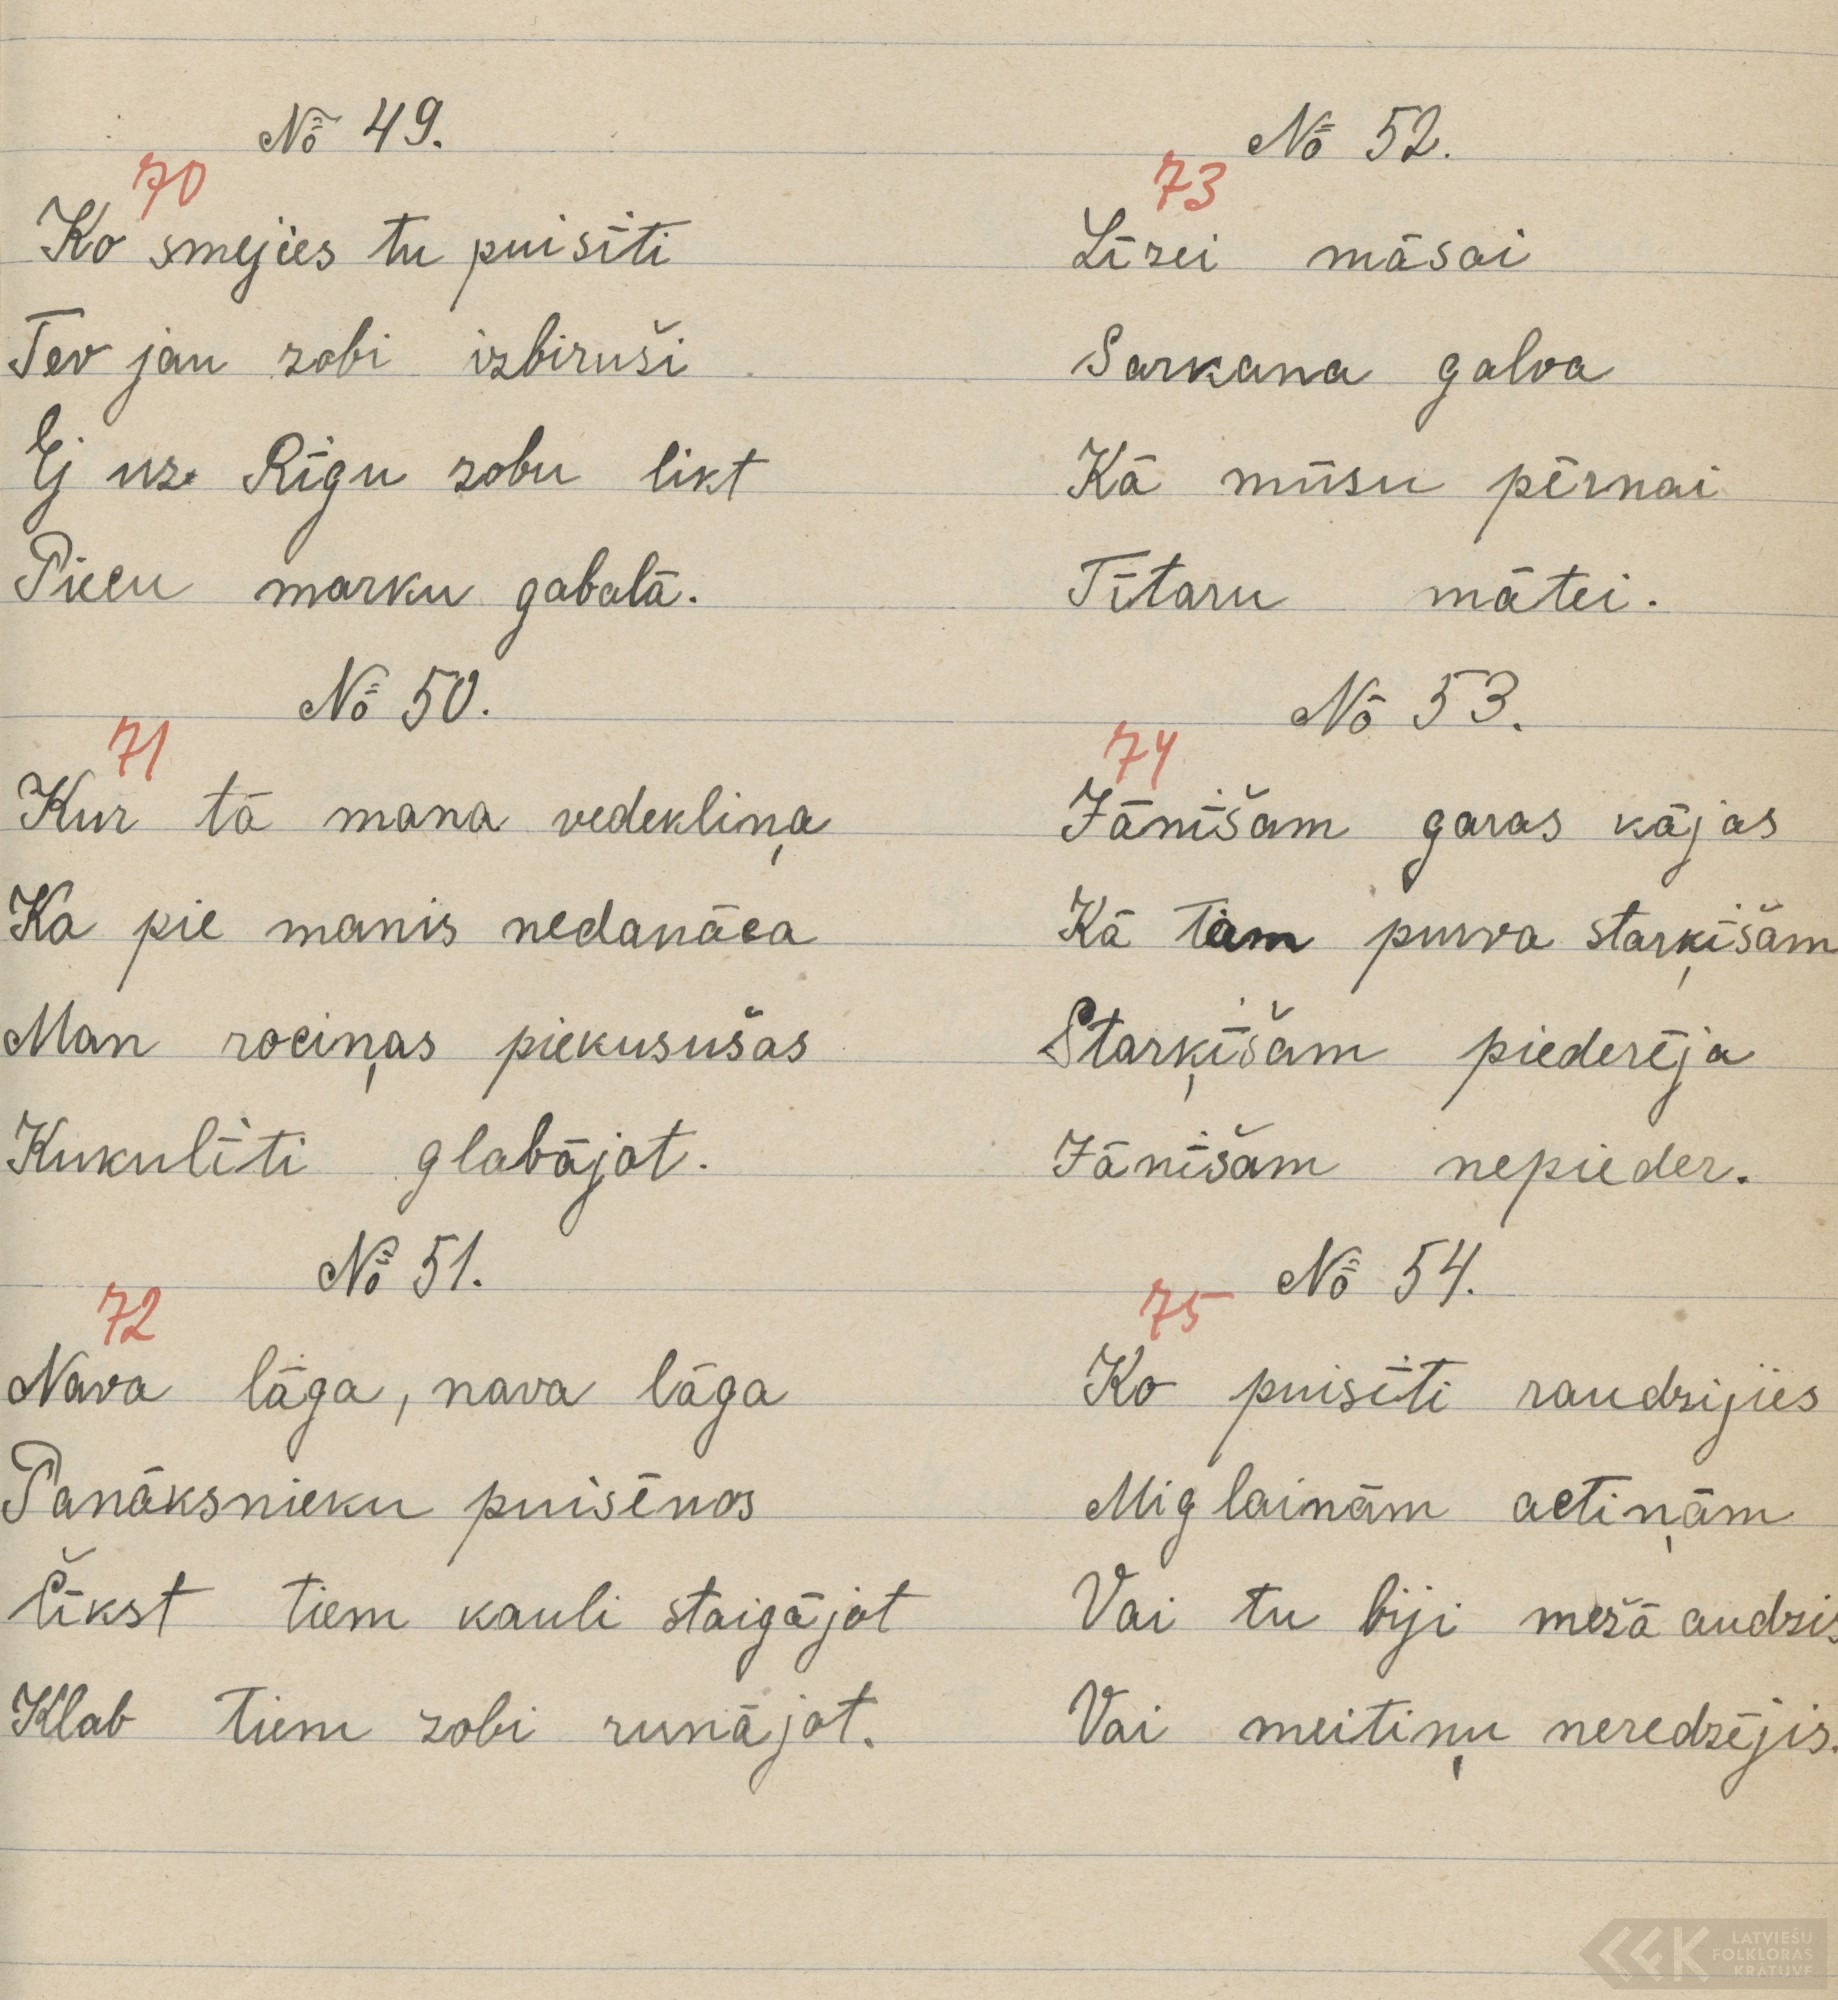 № 49.
70
Ko smejies tu puisīti
Tev jau zobi izbiruši
Ej uz Rīgu zobu likt
Piecu marku gabalā.
№ 50.
71
Kur tā mana vedekliņa
Ka pie manis nedanāca
Man rociņas piekusušas
Kukulīti glabājot.
№ 51.
72
Nava lāga, nava lāga
Panāksnieku puisēnos
Čīkst tiem kauli staigājot
Klab tiem zobi runājot.
№ 52.
73
Līzei māsai
Sarkana galva
Kā mūsu pērnai
Tītaru mātei.
№ 53.
74
Jānīšam garas kājas
Kā tam purva starķīšam
Starķīšam piederēja
Jānīšam nepieder.
№ 54.
75
Ko puisīti raudzijies
Miglainām actiņām
Vai tu biji mežā audzis
Vai meitiņu neredzējis.
LATVIEŠU
FOLKLORAS
KRĀTUVE